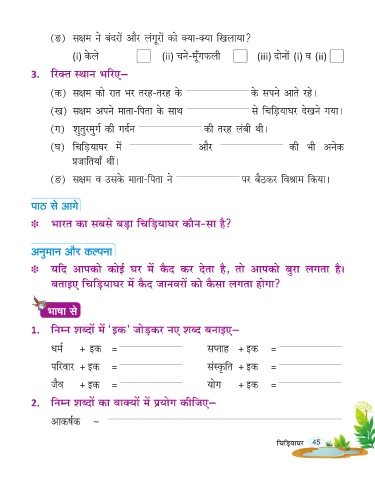 (ङ) सक्षम ने बंदरों और लंगूरों को क्या-क्या खिलाया?
(i) केले (ii) चने-मूँगफली (iii) दोनों (i) व (ii)
3. रिक्त स्थान भरिए–
(क) सक्षम को रात भर तरह-तरह के के सपने आते रहे।
(ख) सक्षम अपने माता-पिता के साथ से चिड़ियाघर देखने गया।
(ग) शुतुरमुर्ग की गर्दन की तरह लंबी थी।
(घ) चिड़ियाघर में और की भी अनेक
प्रजातियाँ थीं।
(ङ) सक्षम व उसके माता-पिता ने पर बैठकर विश्राम किया।
पाठ से आगे
❉ भारत का सबसे बड़ा चिड़ियाघर कौन-सा है?
अनुमान और कल्पना
❉ यदि आपको कोई घर में कैद कर देता है, तो आपको बुरा लगता है।
बताइए चिड़ियाघर में कैद जानवरों को कैसा लगता होगा?
भाषा से
1. निम्न शब्दों में ‘इक’ जोड़कर नए शब्द बनाइए–
धर्म + इक = सप्ताह + इक =
परिवार + इक = संस्कृति + इक =
जैव + इक = योग + इक =
2. निम्न शब्दों का वाक्यों में प्रयोग कीजिए–
आकर्षक –
चिड़ियाघर 45